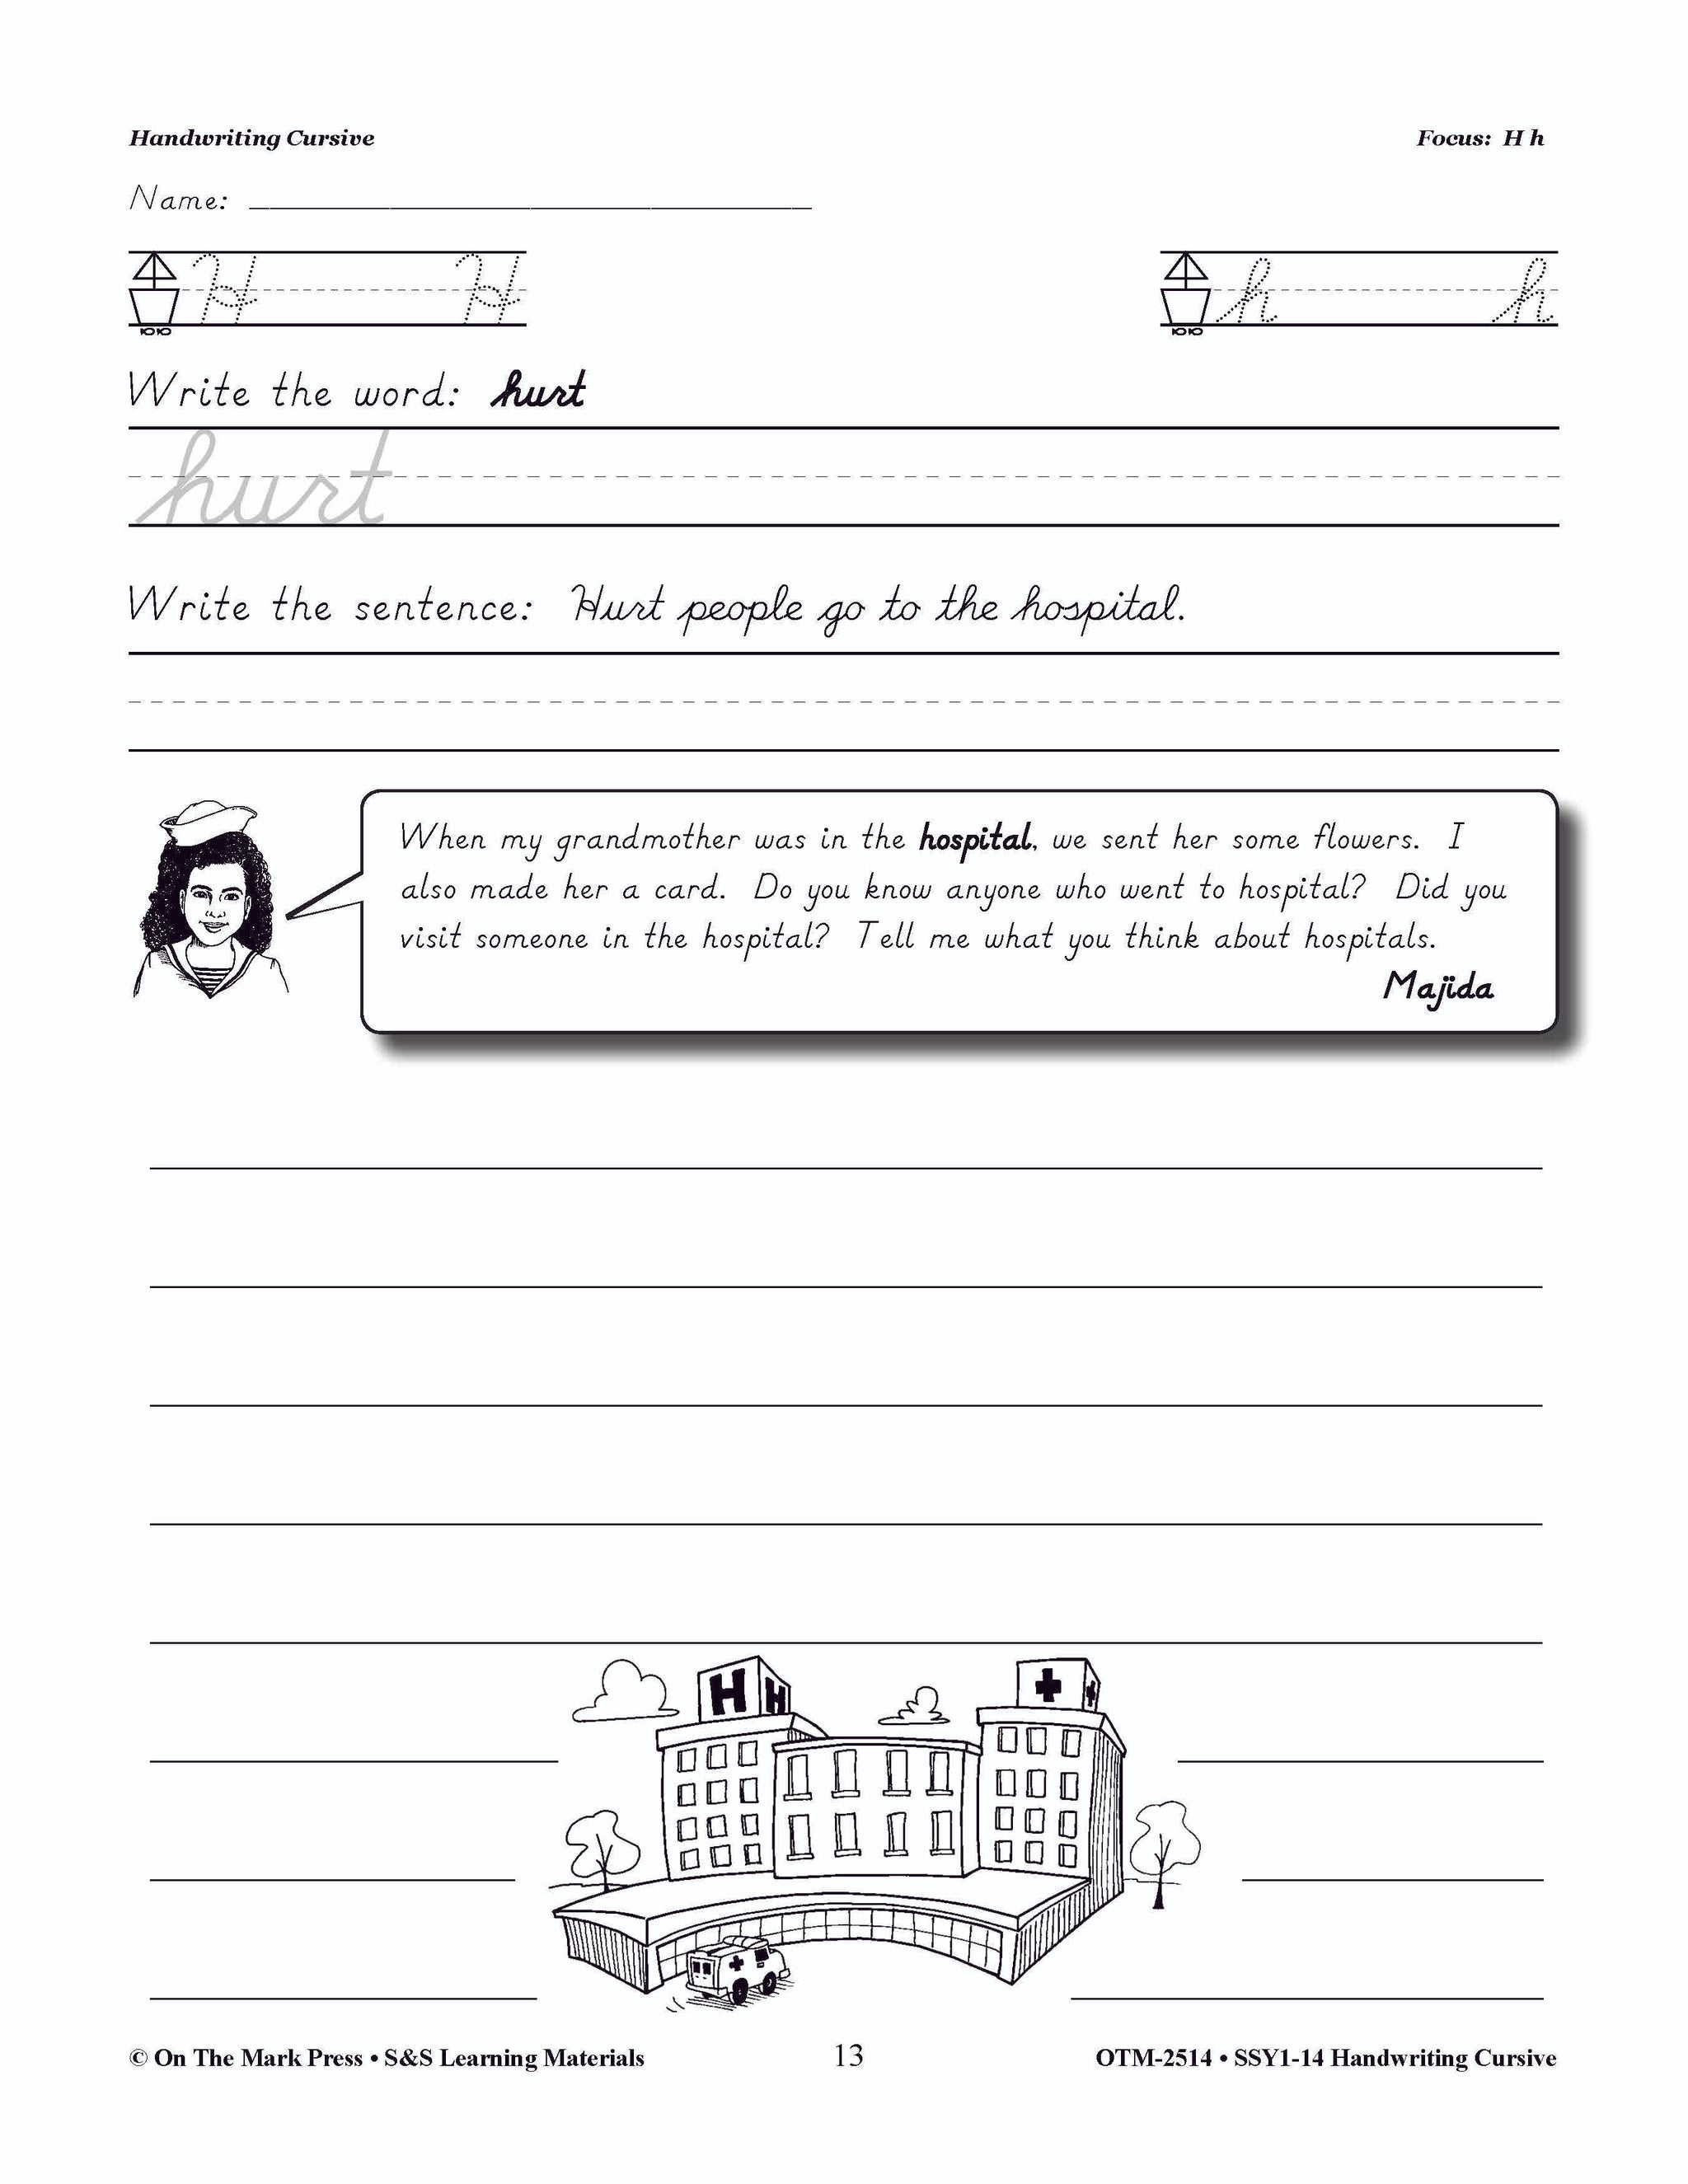 Handwriting Cursive
Focus: H h
Name:
H H
h h
Write the word: hurt
hurt
Write the sentence: Hurt people go to the hospital.
When my grandmother was in the hospital, we sent her some flowers. I
also made her a card. Do you know anyone who went to hospital? Did you
visit someone in the hospital? Tell me what you think about hospitals.
Majida
H H
© On The Mark Press • S&S Learning Materials
13
OTM-2514 • SSY1-14 Handwriting Cursive